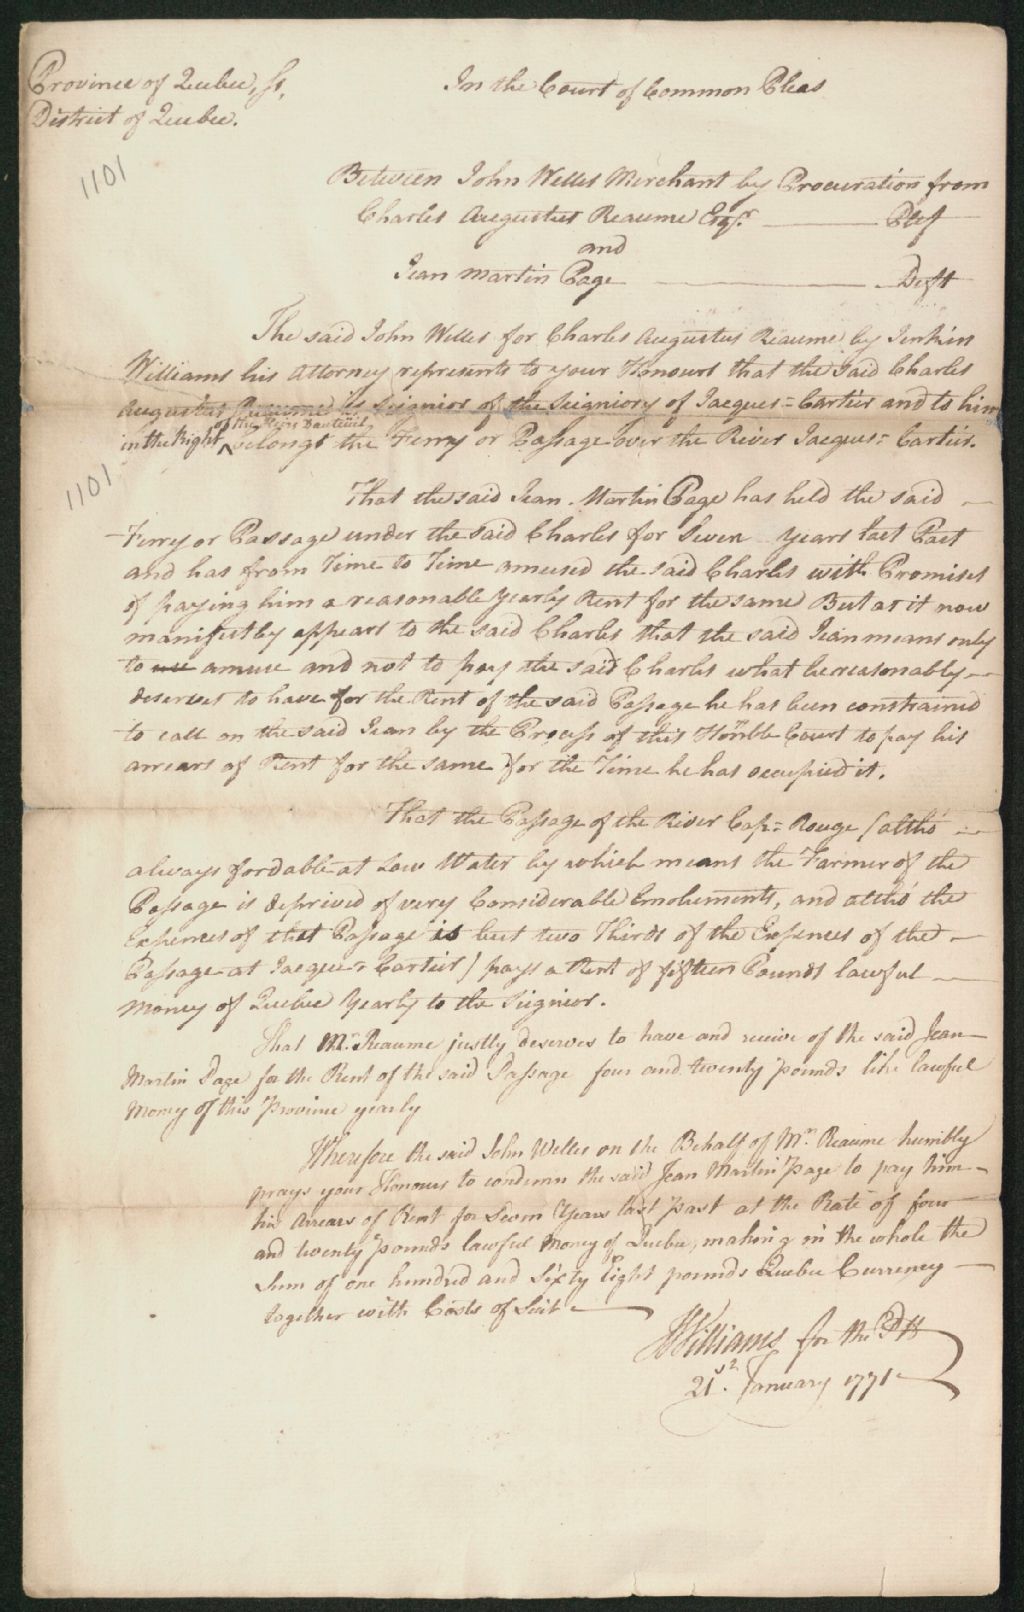 Province of Quebec, ss,
District of Quebec.
In the Court of Common Pleas
1101
Between John Welles Merchant by Procuration from
Charles Augustus Reaume Esqr. Pltf
and
Jean Martin Page Deft
The said John Welles for Charles Augustus Reaume by Jenkin
Williams his Attorney represents to your Honours that the said Charles
Augustus Reaume is Seignior of the Seigniory of Jacques=Cartier and to him
of the Heirs Dauteuil
in the Right ^ belongs the Ferry or Passage over the River Jacques=Cartier.
1101
That the said Jean Martin Page has held the said
Ferry or Passage under the said Charles for Seven Years last Past
and has from Time to Time amused the said Charles with Promises
of paying him a reasonable yearly Rent for the same But as it now
manifestly appears to the said Charles that the said Jean means only
to use amuse and not to pay the said Charles what he reasonably
deserves to have for the Rent of the said Passage he has been constrained
to call on the said Jean by the Process of this Honble Court to pay his
arrears of Rent for the same for the Time he has occupied it.
That the Passage of the River Cap=Rouge (altho'
always fordable at Low Water by which means the Farmer of the
Passage is deprived of very Considerable Emoluments, and altho' the
Expences of that Passage is but two Thirds of the Expences of the
Passage at Jacques=Cartier) pays a Rent of fifteen Pounds lawful
Money of Quebec Yearly to the Seignior.
That Mr. Reaume justly deserves to have and receive of the said Jean
Martin Page for the Rent of the said Passage four and twenty pounds like lawful
Money of this Province yearly
Wherefore the said John Welles on the Behalf of Mr. Reaume humbly
prays your Honours to condemn the said Jean Martin Page to pay him
his Arrears of Rent for Seven Years last past at the Rate of four
and twenty pounds lawful Money of Quebec, making in the whole the
Sum of one hundred and Sixty Eight pounds Quebec Currency
together with Costs of Suit
JWilliams for the Pltf
21st January 1771